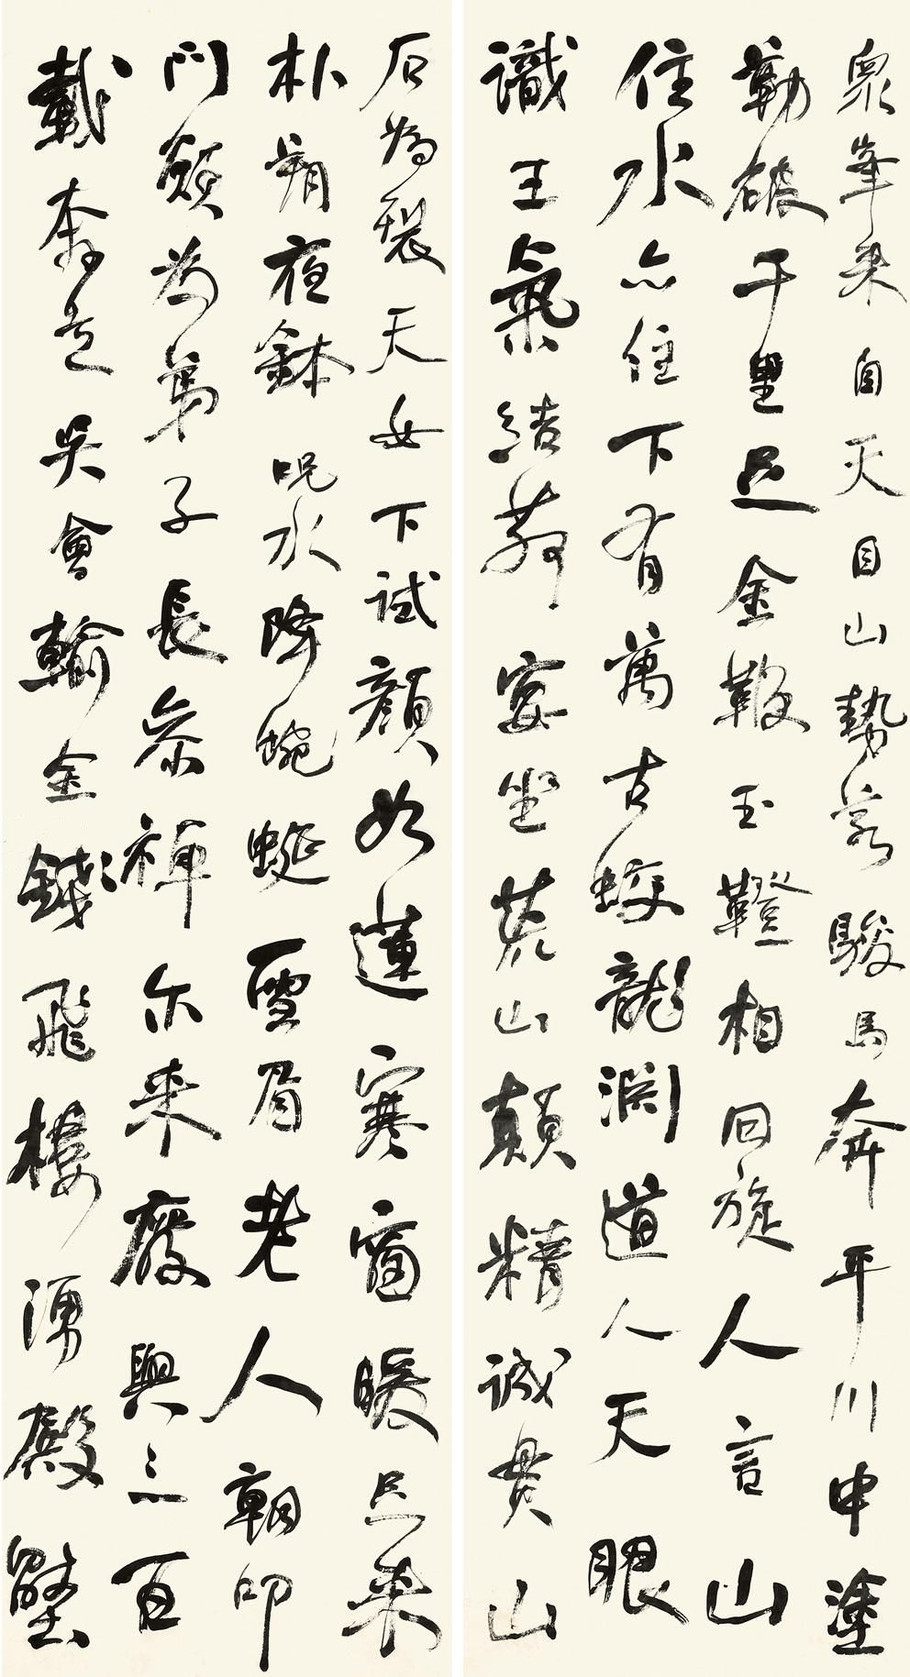 衆峯来自天目山勢若駿馬奔平川中塗
勒破千里足金鞭玉鐙相回旋人言山
住水亦住下有萬古蛟龍淵道人天眼
識王氣結茅宴坐荒山顛精誠貫山
石為裂天女下試顔如蓮寒窗暖足来
朴朔夜鉢呪水降蜿蜒雪眉老人朝叩
門願為弟子長參禪尓来廢興三百
載奔走吳會輸金錢飛樓湧殿壓